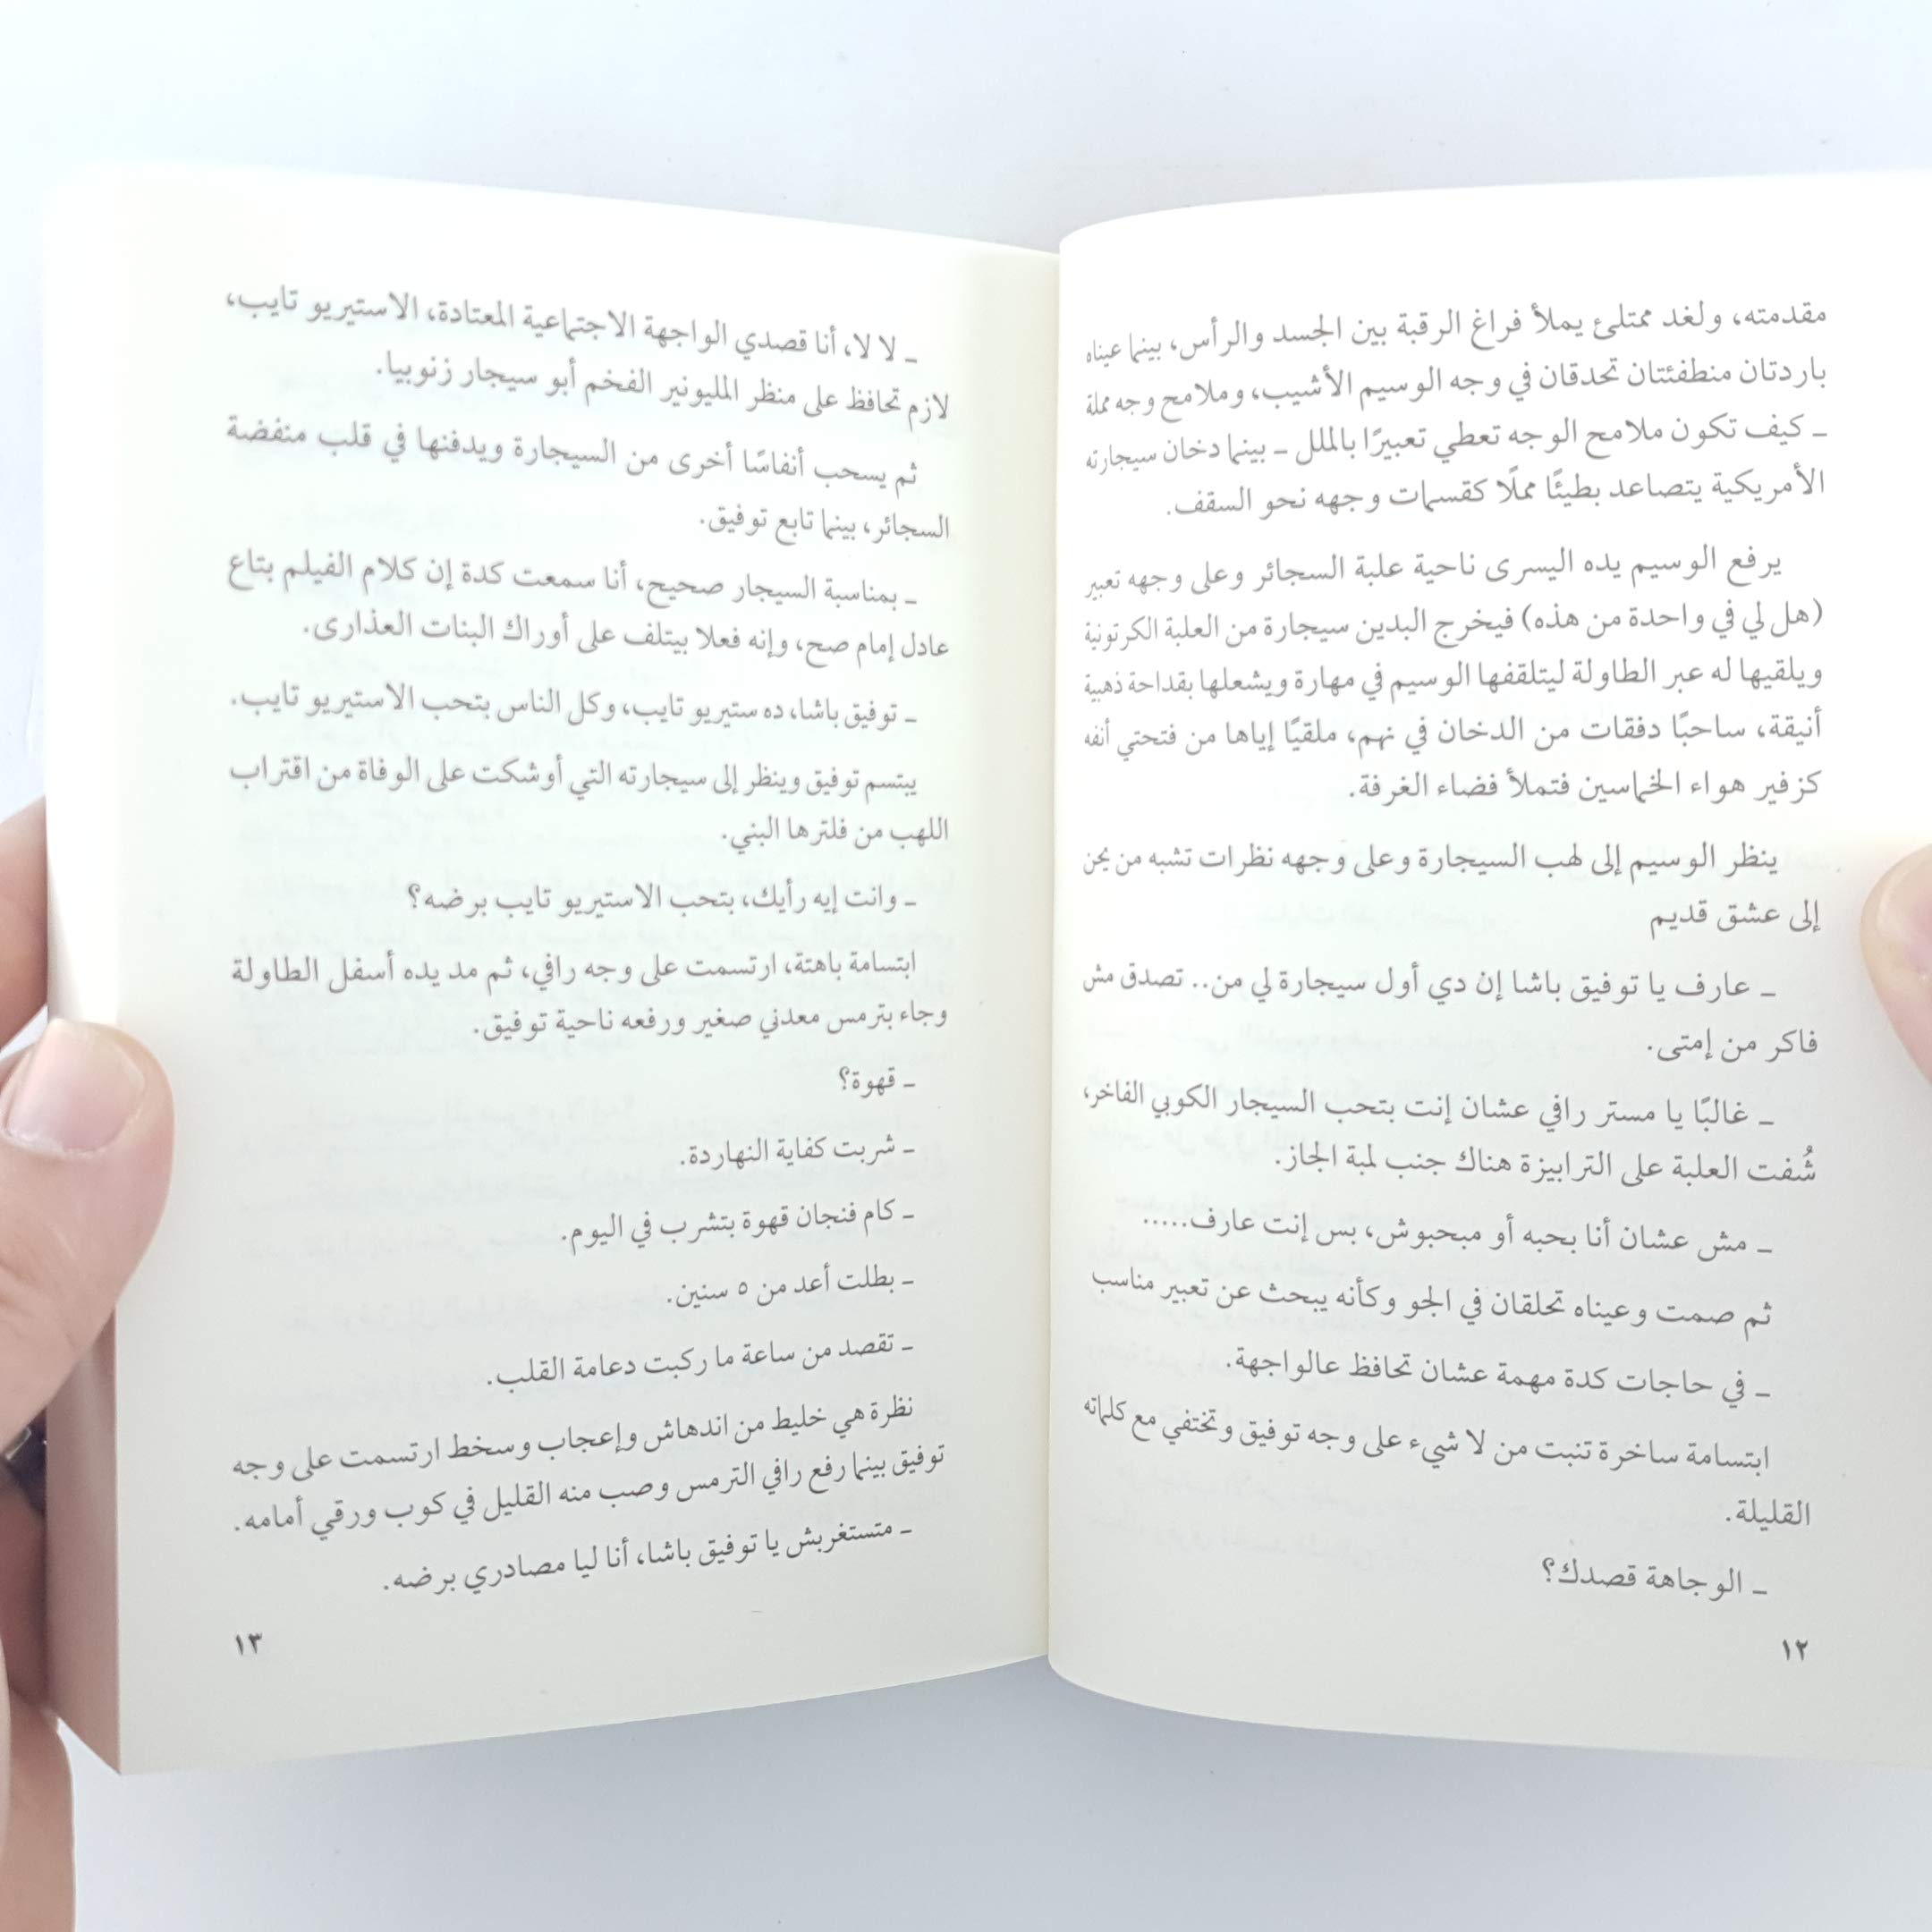 مقدمته، ولغد ممتلئ يملأ فراغ الرقبة بين الجسد والرأس، بينما عيناه
باردتان منطفئتان تحدقان في وجه الوسيم الأشيب، وملامح وجه مملة
ـ كيف تكون ملامح الوجه تعطي تعبيرًا بالملل ـ بينما دخان سيجارته
الأمريكية يتصاعد بطيئًا مملًا كقسمات وجهه نحو السقف.
يرفع الوسيم يده اليسرى ناحية علبة السجائر وعلى وجهه تعبير
(هل لي في واحدة من هذه) فيخرج البدين سيجارة من العلبة الكرتونية
ويلقيها له عبر الطاولة ليتلقفها الوسيم في مهارة ويشعلها بقداحة ذهبية
أنيقة، ساحبًا دفقات من الدخان في نهم، ملقيًا إياها من فتحتي أنفه
كزفير هواء الخماسين فتملأ فضاء الغرفة.
ينظر الوسيم إلى لهب السيجارة وعلى وجهه نظرات تشبه من يحن
إلى عشق قديم
ـ عارف يا توفيق باشا إن دي أول سيجارة لي من.. تصدق مش
فاكر من إمتى.
ـ غالبًا يا مستر رافي عشان إنت بتحب السيجار الكوبي الفاخر،
شُفت العلبة على الترابيزة هناك جنب لمبة الجاز.
ـ مش عشان أنا بحبه أو مبحبوش، بس إنت عارف.....
ثم صمت وعيناه تحلقان في الجو وكأنه يبحث عن تعبير مناسب
ـ في حاجات كدة مهمة عشان تحافظ عالواجهة.
ابتسامة ساخرة تنبت من لا شيء على وجه توفيق وتختفي مع كلماته
القليلة.
ـ الوجاهة قصدك؟
١٢
ـ لا لا، أنا قصدي الواجهة الاجتماعية المعتادة، الاستيريو تايب،
لازم تحافظ على منظر المليونير الفخم أبو سيجار زنوبيا.
ثم يسحب أنفاسًا أخرى من السيجارة ويدفنها في قلب منفضة
السجائر، بينما تابع توفيق.
ـ بمناسبة السيجار صحيح، أنا سمعت كدة إن كلام الفيلم بتاع
عادل إمام صح، وإنه فعلا بيتلف على أوراك البنات العذارى.
ـ توفيق باشا، ده ستيريو تايب، وكل الناس بتحب الاستيريو تايب.
يبتسم توفيق وينظر إلى سيجارته التي أوشكت على الوفاة من اقتراب
اللهب من فلترها البني.
ـ وانت إيه رأيك، بتحب الاستيريو تايب برضه؟
ابتسامة باهتة، ارتسمت على وجه رافي، ثم مد يده أسفل الطاولة
وجاء بترمس معدني صغير ورفعه ناحية توفيق.
ـ قهوة؟
ـ شربت كفاية النهاردة.
ـ كام فنجان قهوة بتشرب في اليوم.
ـ بطلت أعد من ٥ سنين.
ـ تقصد من ساعة ما ركبت دعامة القلب.
نظرة هي خليط من اندهاش وإعجاب وسخط ارتسمت على وجه
توفيق بينما رفع رافي الترمس وصب منه القليل في كوب ورقي أمامه.
ـ متستغربش يا توفيق باشا، أنا ليا مصادري برضه.
١٣